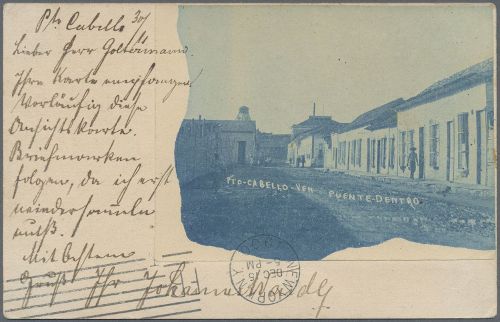 Pto Cabello 30/
Lieber Herr Goltermann.
Ihre Karte empfangen
Vorläufig diese
Ansichtskarte.
Briefmarken
folgen, da ich erst
wieder sammeln
muß.
Mit bestem
Gruß Ihr Johannes
PTO-CABELLO-VEN PUENTE-DENTRO.
NEW YORK, N.Y.
DEC 16
5-PM